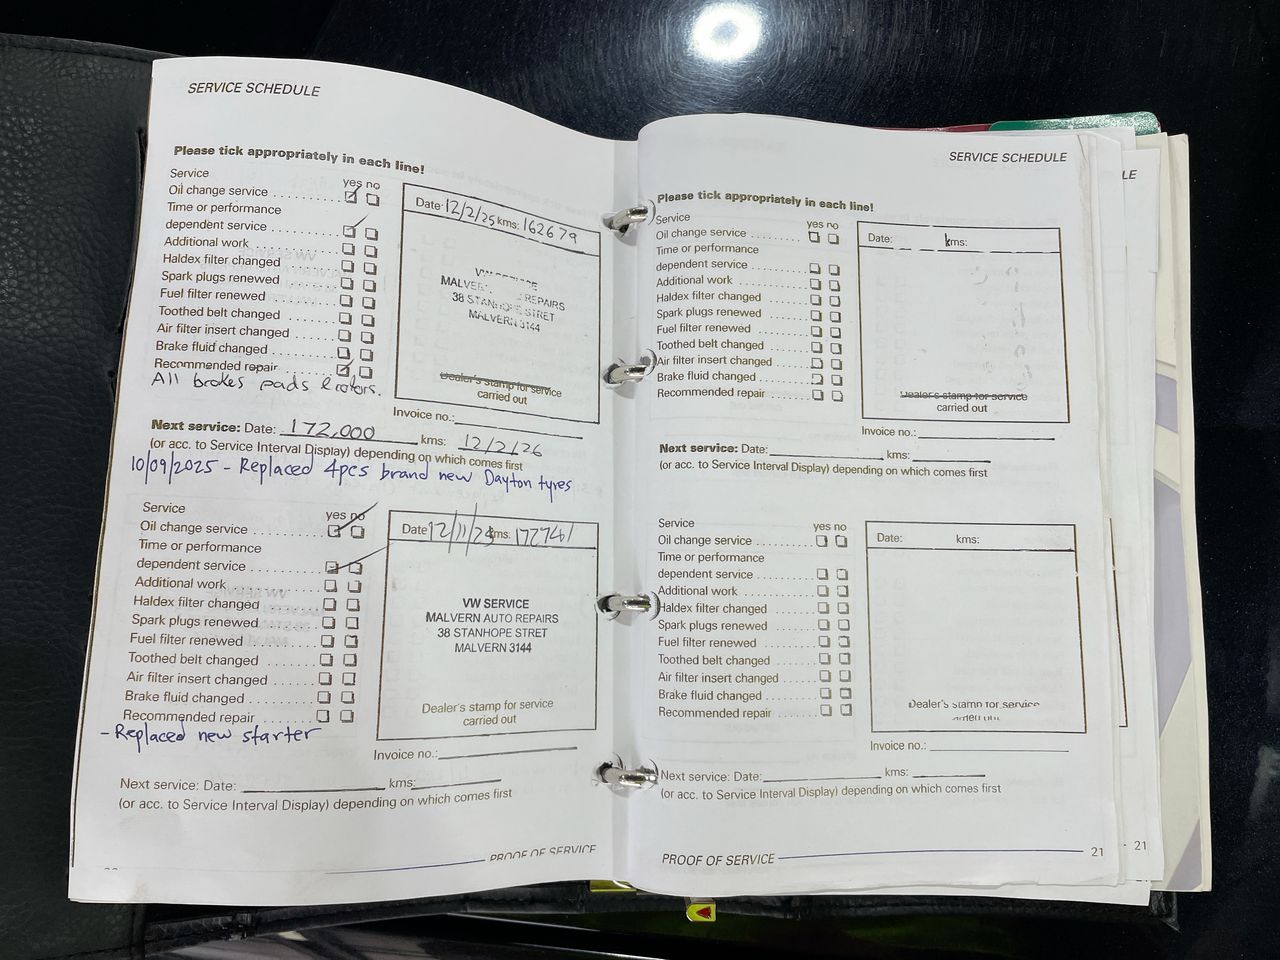 SERVICE SCHEDULE
Please tick appropriately in each line!
Service
yes no
Oil change service
Time or performance
dependent service
Additional work
Haldex filter changed
Spark plugs renewed
Fuel filter renewed
Toothed belt changed
Air filter insert changed
Brake fluid changed
Recommended repair
All brakes pads & rotors.
Date: 12/2/25 kms: 162679
VW SERVICE
MALVERN REPAIRS
38 STANHOPE STRET
MALVERN 3144
Dealer's stamp for service
carried out
Invoice no.:
Next service: Date: 172,000 kms: 12/2/26
(or acc. to Service Interval Display) depending on which comes first
10/09/2025 - Replaced 4pcs brand new Dayton tyres
Service
yes no
Oil change service
Time or performance
dependent service
Additional work
Haldex filter changed
Spark plugs renewed
Fuel filter renewed
Toothed belt changed
Air filter insert changed
Brake fluid changed
Recommended repair
- Replaced new starter
Date 12/11/25 kms: 172761
VW SERVICE
MALVERN AUTO REPAIRS
38 STANHOPE STRET
MALVERN 3144
Dealer's stamp for service
carried out
Invoice no.:
Next service: Date: kms:
(or acc. to Service Interval Display) depending on which comes first
PROOF OF SERVICE
SERVICE SCHEDULE
Please tick appropriately in each line!
Service
yes no
Oil change service
Time or performance
dependent service
Additional work
Haldex filter changed
Spark plugs renewed
Fuel filter renewed
Toothed belt changed
Air filter insert changed
Brake fluid changed
Recommended repair
Date: kms:
Dealer's stamp for service
carried out
Invoice no.:
Next service: Date: kms:
(or acc. to Service Interval Display) depending on which comes first
Service
yes no
Oil change service
Time or performance
dependent service
Additional work
Haldex filter changed
Spark plugs renewed
Fuel filter renewed
Toothed belt changed
Air filter insert changed
Brake fluid changed
Recommended repair
Date: kms:
Dealer's stamp for service
Invoice no.:
Next service: Date: kms:
(or acc. to Service Interval Display) depending on which comes first
PROOF OF SERVICE 21
LE
21